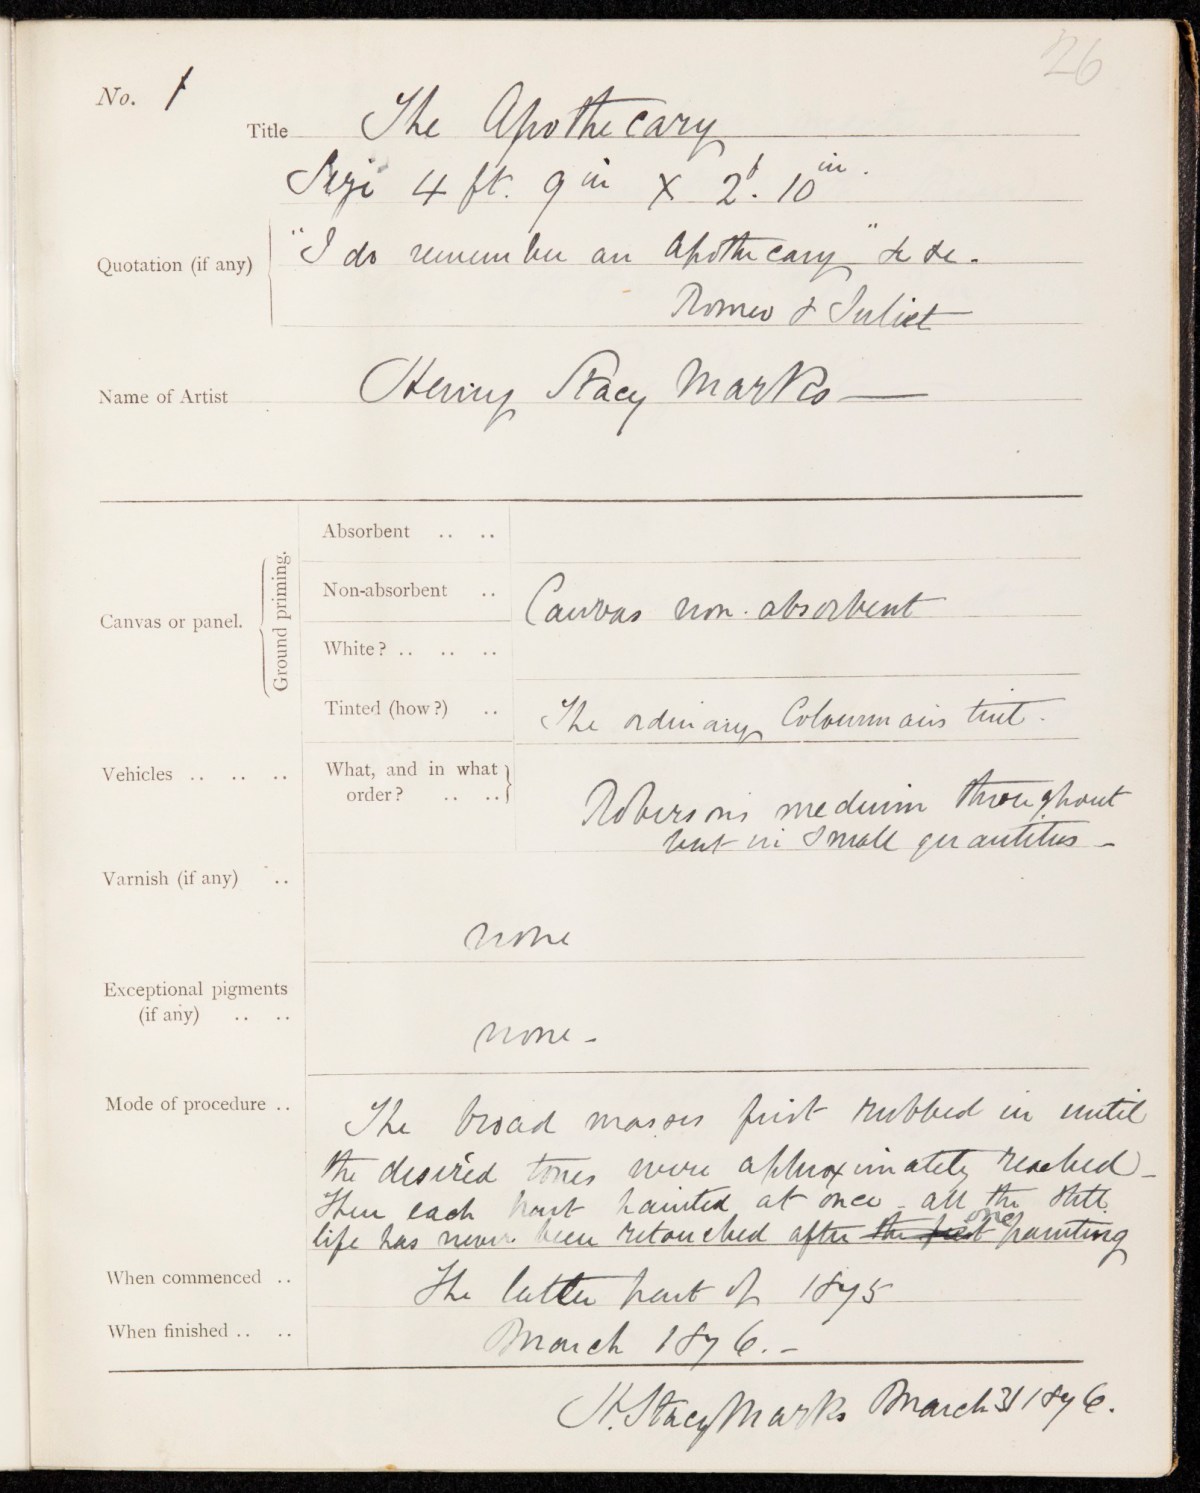 26
No. 1
Title The Apothecary
Size 4 ft. 9 in x 2f. 10 in.
Quotation (if any) "I do remember an Apothecary" &c &c.
Romeo & Juliet
Name of Artist Henry Stacy Marks
Canvas or panel. Ground priming.
Absorbent .. ..
Non-absorbent .. Canvas non-absorbent
White? .. .. ..
Tinted (how?) .. The ordinary Colourmans tint.
Vehicles .. .. .. What, and in what order? .. .. Robersons medium throughout
but in small quantities -
Varnish (if any) ..
none
Exceptional pigments
(if any) .. ..
none -
Mode of procedure .. The broad masses first rubbed in until
the desired tones were approximately reached -
Then each part painted at once - all the still
life has never been retouched after the first one painting
When commenced .. The latter part of 1875
When finished .. .. March 1876. -
H. Stacy Marks March 31 1876.